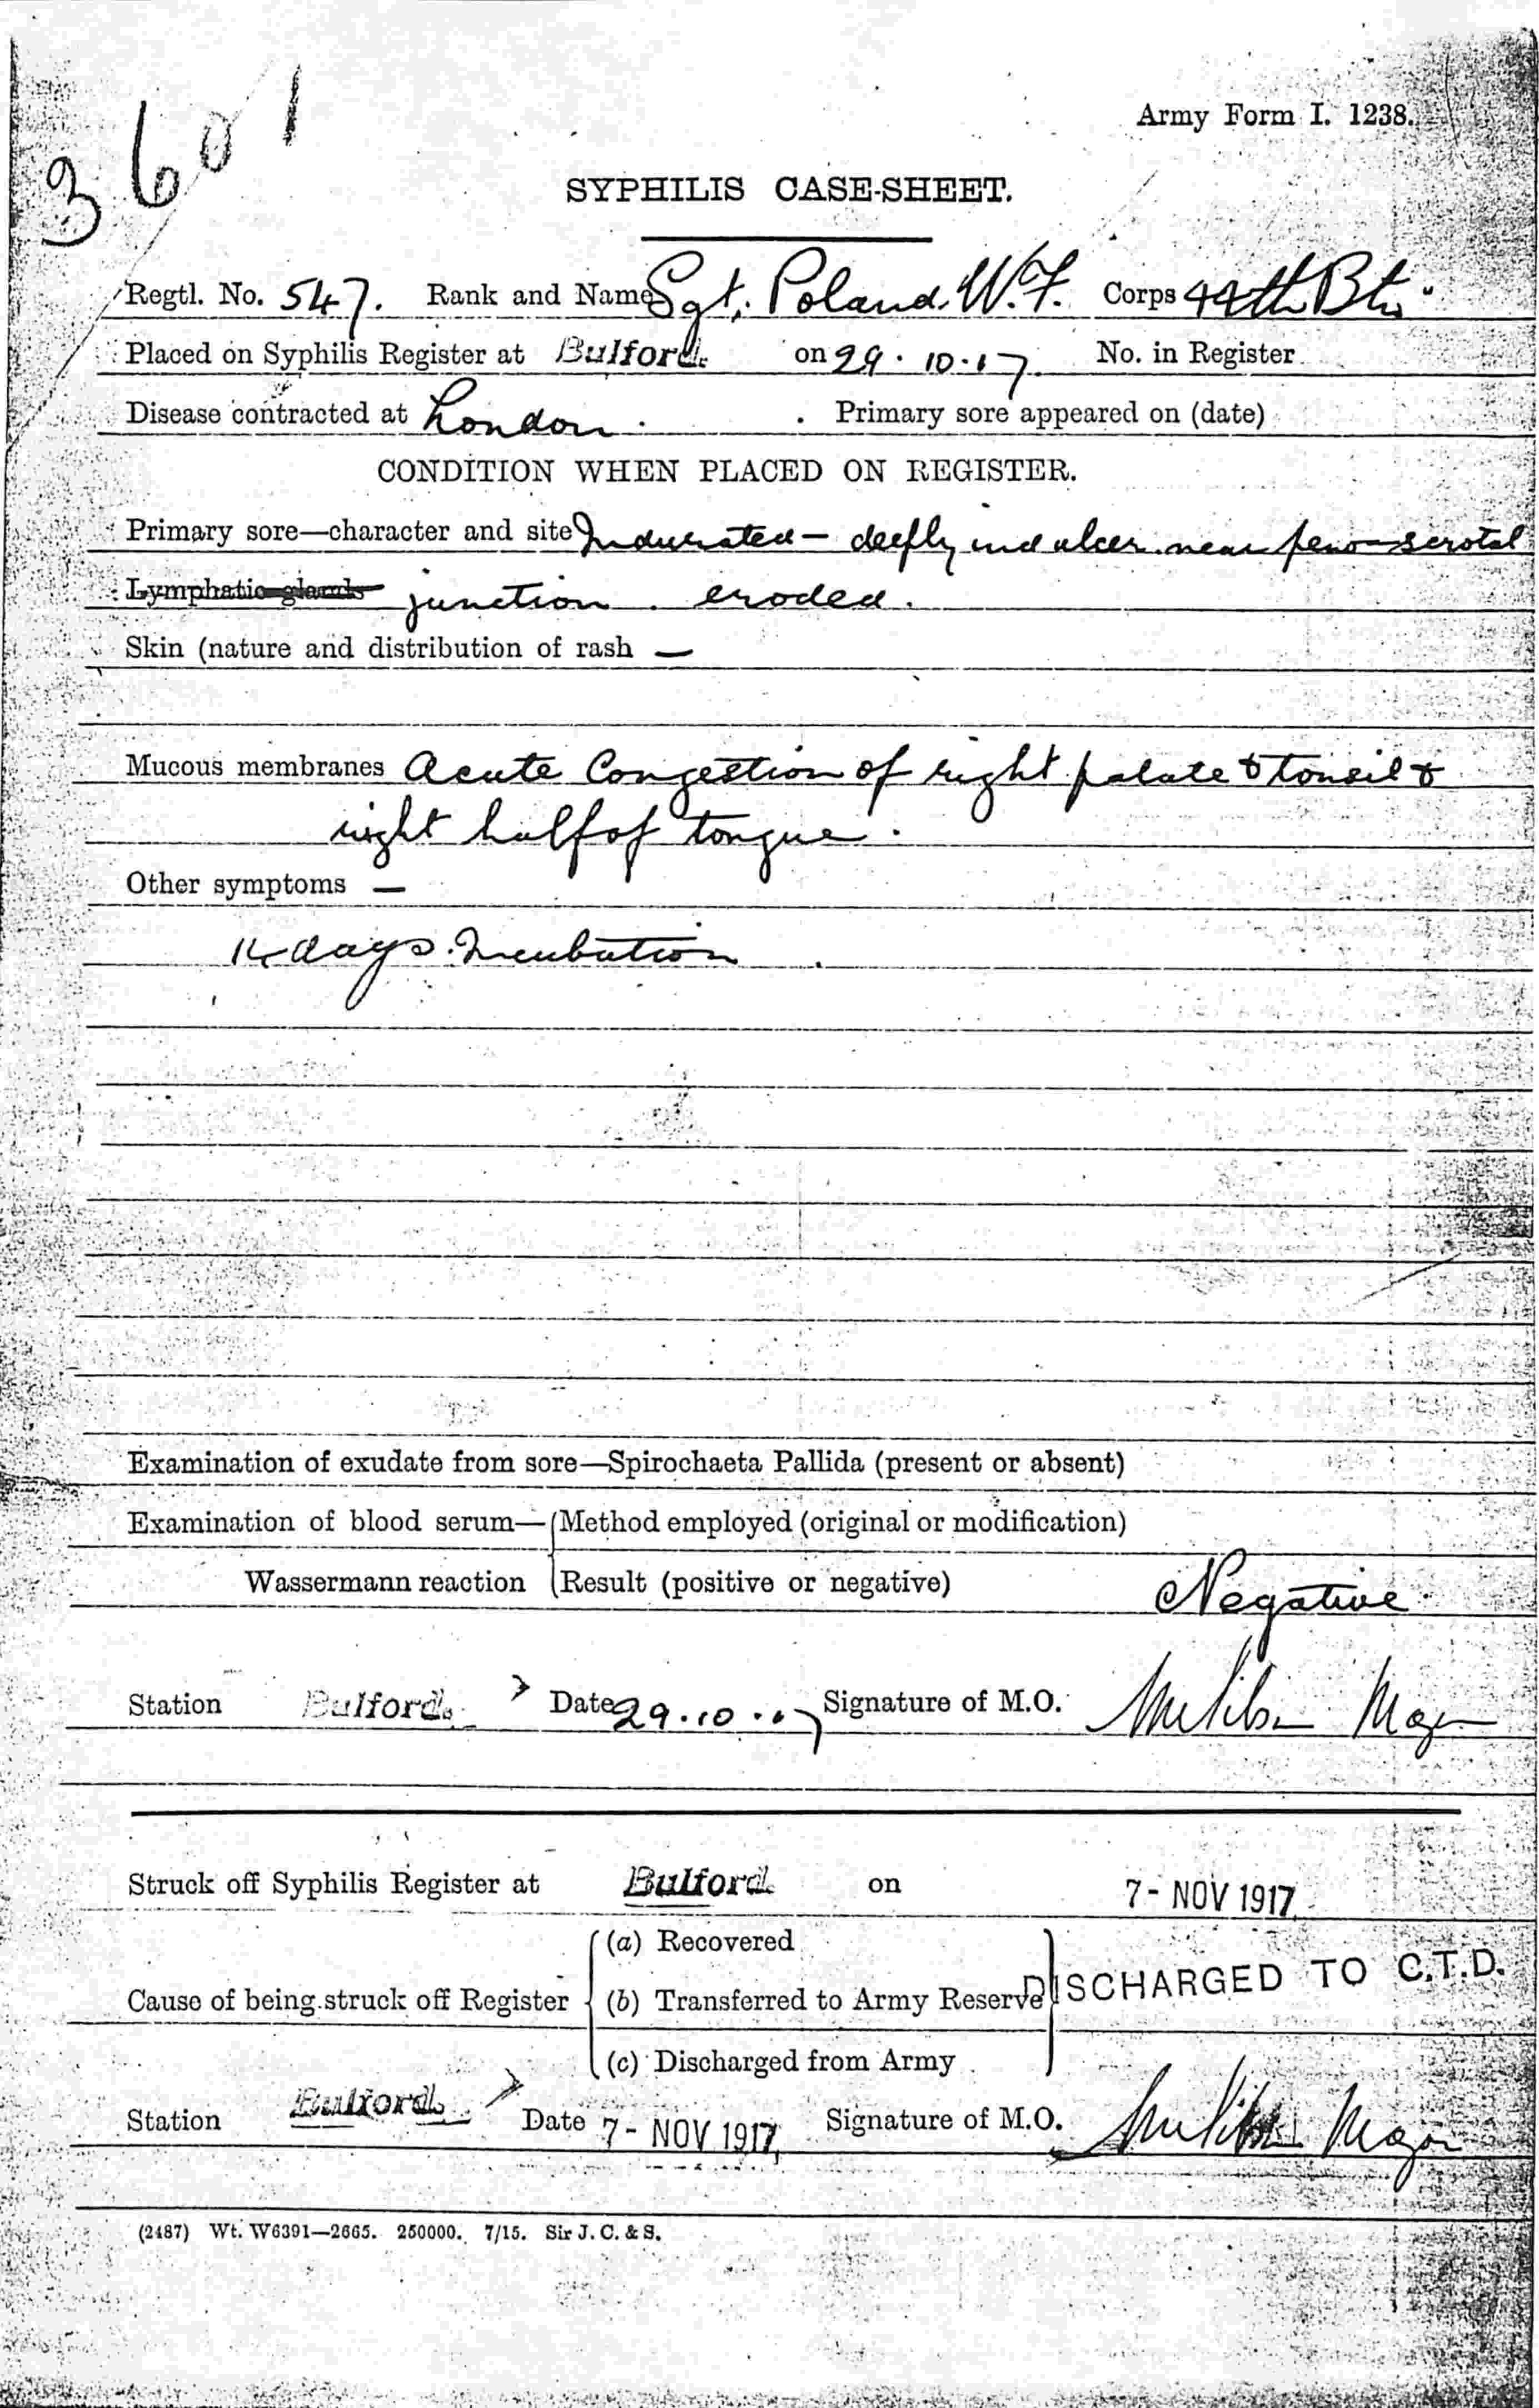 3601
Army Form I. 1238.
SYPHILIS CASE-SHEET.
Regtl. No. 547. Rank and Name Sgt. Poland. W.F. Corps 44th Btn.
Placed on Syphilis Register at Bulford. on 29.10.17. No. in Register
Disease contracted at London. Primary sore appeared on (date)
CONDITION WHEN PLACED ON REGISTER.
Primary sore—character and site Indurated – deeply ind ulcer near peno-scrotal
Lymphatic glands junction. eroded.
Skin (nature and distribution of rash —
Mucous membranes Acute Congestion of right palate & tonsil &
right half of tongue.
Other symptoms —
14 days. Incubation.
Examination of exudate from sore—Spirochaeta Pallida (present or absent)
Examination of blood serum— Method employed (original or modification)
Wassermann reaction Result (positive or negative) Negative.
Station Bulford. Date 29.10.17 Signature of M.O. Major
Struck off Syphilis Register at Bulford on 7- NOV 1917
(a) Recovered
Cause of being struck off Register (b) Transferred to Army Reserve DISCHARGED TO C.T.D.
(c) Discharged from Army
Station Bulford. Date 7- NOV 1917 Signature of M.O. Major
(2487) Wt. W6391—2665. 250000. 7/15. Sir J. C. & S.